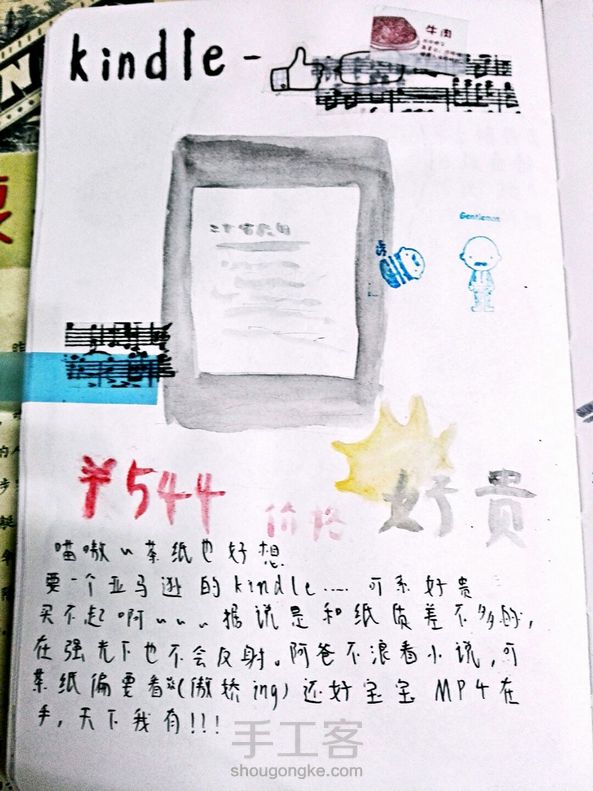 kindle-
牛肉
Gentleman
¥544 价格 好贵
喵嗷～茶纸也好想
要一个亚马逊的kindle……可系好贵
买不起啊～～～据说是和纸质差不多的,
在强光下也不会反射。阿爸不浪看小说,可
茶纸偏要看(傲娇ing)还好宝宝MP4在
手,天下我有!!!
手工客
shougongke.com